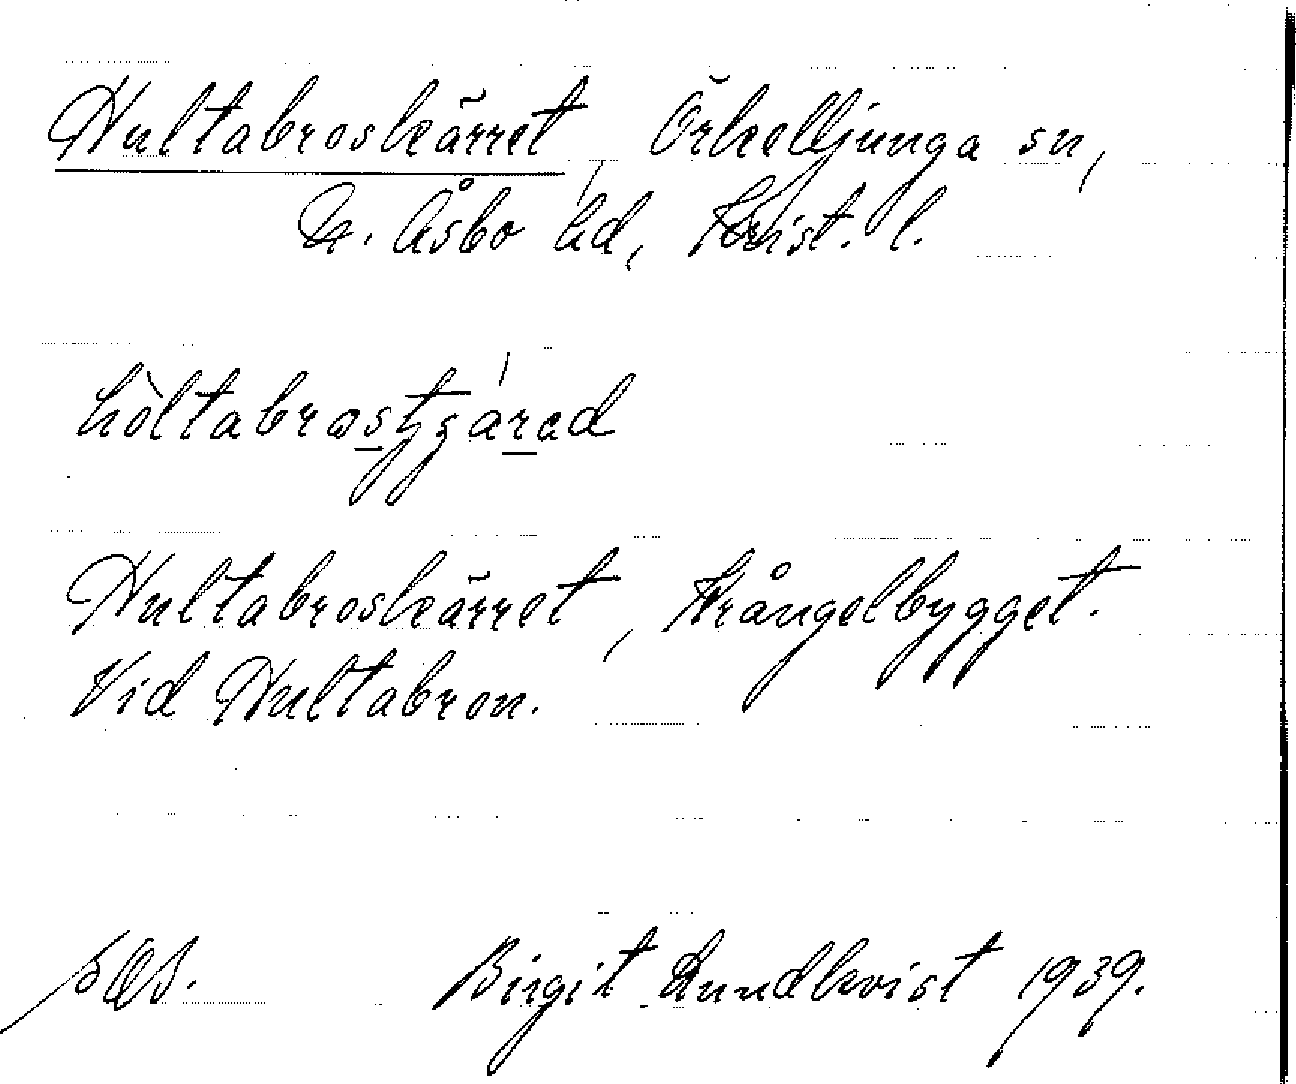 Hultabroskärret, Örkelljunga sn,
N. Åsbo hd, Krist. l.
Hultabroskärret, Krångelbygget.
Vid Hultabron.
Birgit Lundkvist 1939.